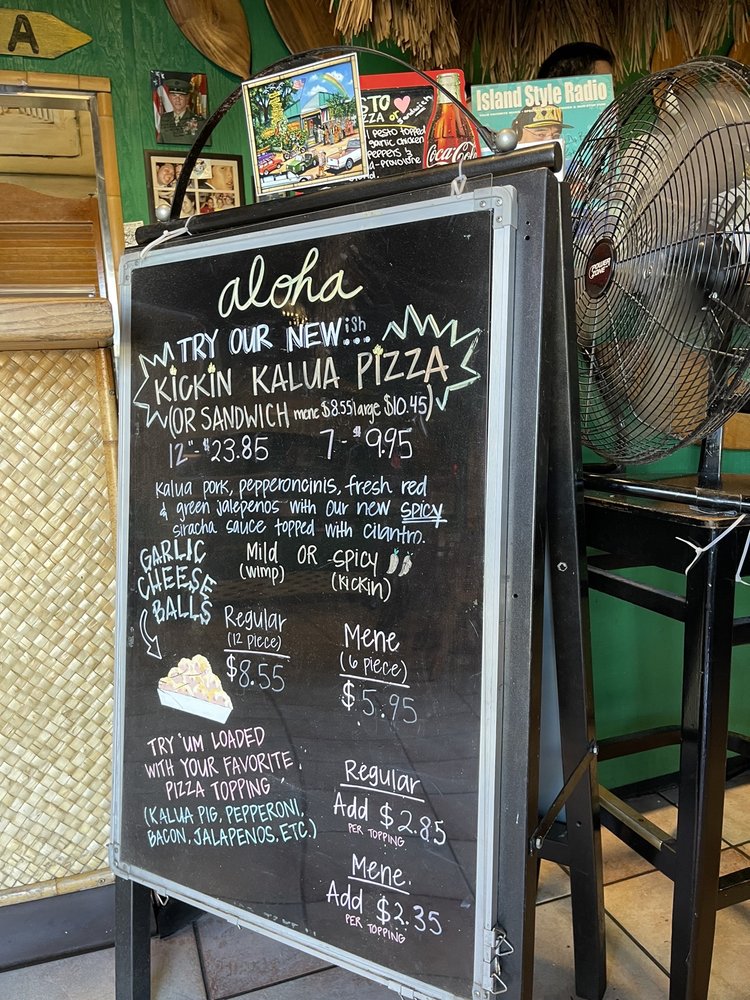 A
STO ♥
ZZA of
pesto topped
garlic chicken
peppers &
d-provolone
Coca-Cola
Island Style Radio
POWER ZONE
aloha
TRY OUR NEWish...
KICKIN KALUA PIZZA
(OR SANDWICH mene $8.55 large $10.45)
12"-$23.85 7-$9.95
Kalua pork, pepperoncinis, fresh red
& green jalepenos with our new spicy
siracha sauce topped with cilantro.
Mild OR SPICY
(wimp) (kickin)
GARLIC
CHEESE
BALLS
Regular
(12 piece)
$8.55
Mene
(6 piece)
$5.95
TRY 'UM LOADED
WITH YOUR FAVORITE
PIZZA TOPPING
(KALUA PIG, PEPPERONI,
BACON, JALAPENOS, ETC.)
Regular
Add $2.85
PER TOPPING
Mene
Add $2.35
PER TOPPING